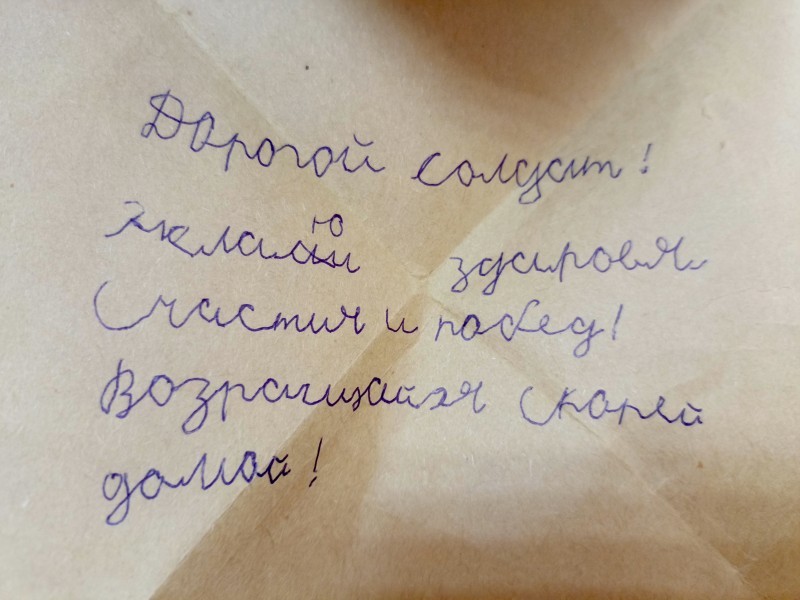 Дорогой солдат!
Жклаю здаровя
Счастия и побед!
Возращайхя скорей
домой!